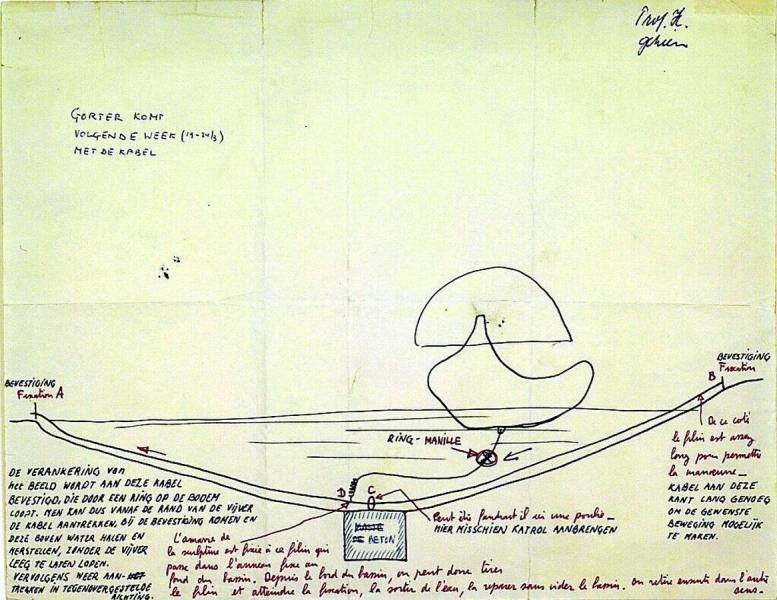 Prof. H.
gezien
GORTER KOMT
VOLGENDE WEEK (19-24/3)
MET DE KABEL
BEVESTIGING
Fixation A
BEVESTIGING
B Fixation
RING - MANILLE
De ce coté
le filin est assez
long pour permettre
la manoeuvre -
KABEL AAN DEZE
KANT LANG GENOEG
OM DE GEWENSTE
BEWEGING MOGELIJK
TE MAKEN.
D C
BETON
Peut être faudrait il ici une poulie -
HIER MISSCHIEN KATROL AANBRENGEN
DE VERANKERING van
het BEELD WORDT AAN DEZE KABEL
BEVESTIGD, DIE DOOR EEN RING OP DE BODEM
LOOPT. MEN KAN DUS VANAF DE RAND VAN DE VIJVER
DE KABEL AANTREKKEN, BIJ DE BEVESTIGING KOMEN EN
DEZE BOVEN WATER HALEN EN
HERSTELLEN, ZONDER DE VIJVER
LEEG TE LATEN LOPEN.
VERVOLGENS WEER AAN-
TREKKEN IN TEGENOVERGESTELDE
RICHTING.
L'amarre de
la sculpture est fixée à ce filin qui
passe dans l'anneau fixe au
fond du bassin. Depuis le bord du bassin, on peut donc tirer
le filin et atteindre la fixation, la sortir de l'eau, la reparer sans vider le bassin. On retire ensuite dans l'autre
sens -